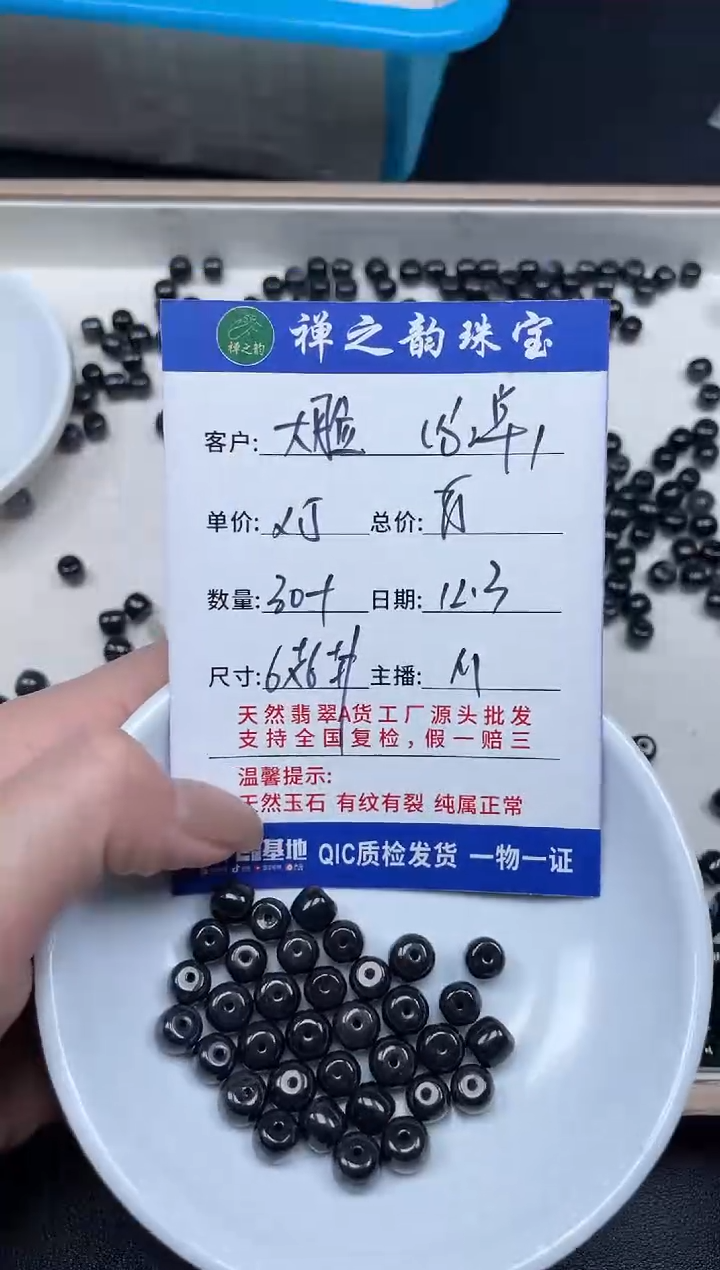 禅之韵 禅之韵珠宝
客户: 大脸
单价: 总价:
数量: 30十 日期: 12.3
尺寸: 主播: M
天然翡翠A货工厂源头批发
支持全国复检,假一赔三
温馨提示:
天然玉石 有纹有裂 纯属正常
基地 QIC质检发货 一物一证